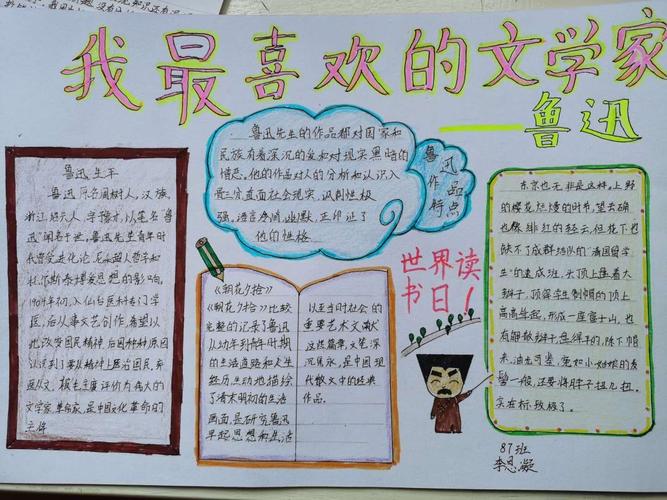 我最喜欢的文学家
——鲁迅
鲁迅生平
鲁迅原名周树人，汉族，
浙江绍兴人，字豫才，以笔名“鲁
迅”闻名于世，鲁迅先生青年时
代曾受进化论，尼采超人哲学和
托尔斯泰博爱思想的影响，
1904年初，入仙台医科专门学
医，后从事文艺创作，希望以
此改变国民精神，
文学家，革命家，是中国文化革命的
主将
鲁迅先生的作品都对国家和
民族有着深沉的爱和对现实黑暗的
憎恶。他的作品对人的分析和认识入
骨三分直面社会现实，讽刺性极
强，语言凝练，幽默，正印证了
他们性格
鲁迅
作品
特点
世界读
书日！
《朝花夕拾》
《朝花夕拾》比较
完整的记录了鲁迅
从幼年到青年时期
的生活道路和人生
经历，生动地描绘
了清末明初的生活
画面，是研究鲁迅
早起思想和生活
以至当时社会的
重要艺术文献
这些篇章，文笔深
沉隽永，是中国现
代散文中的经典
作品。
东京也无非是这样。上野
的樱花烂熳的时节，望去确
也像绯红的轻云，但花下也
缺不了成群结队的“清国留学
生”的速成班，头顶上盘着大
辫子，顶得学生制帽的顶上
高高耸起，形成一座富士山，也
有解散辫子，盘得平的，除下帽
来，油光可鉴，宛如小姑娘的发
髻一般，还要将脖子扭几扭。
实在标致极了。
87班
李思凝